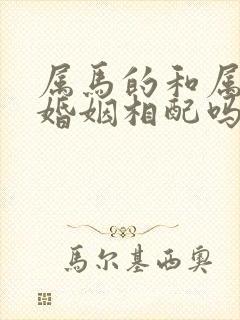 属马的和属
婚姻相配吗
马尔基西奥